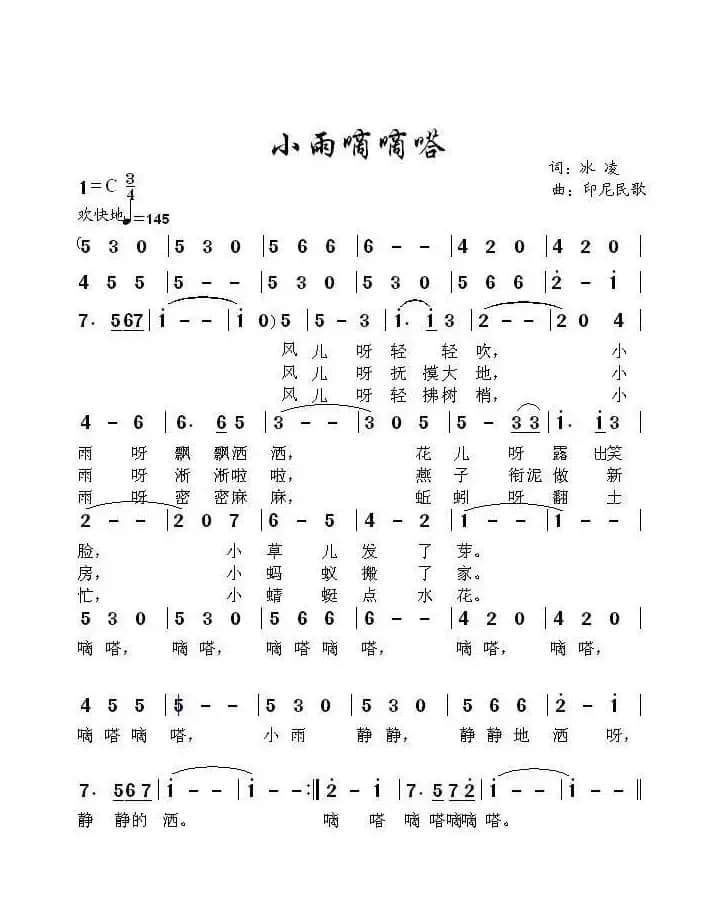 小雨嘀嘀嗒
词：冰 凌
1=C 3/4
曲：印尼民歌
欢快地 ♩=145
( 5 3 0 | 5 3 0 | 5 6 6 | 6 - - | 4 2 0 | 4 2 0 |
4 5 5 | 5 - - | 5 3 0 | 5 3 0 | 5 6 6 | 2̇ - 1̇ |
7. 567 | 1̇ - - | 1̇ 0) 5 | 5 - 3 | 1̇. 1̇ 3 | 2 - - | 2 0 4 |
风 儿 呀 轻 轻 吹， 小
风 儿 呀 抚 摸 大 地， 小
风 儿 呀 轻 拂 树 梢， 小
4 - 6 | 6. 6 5 | 3 - - | 3 0 5 | 5 - 3 3 | 1̇. 1̇ 3 |
雨 呀 飘 飘洒 洒， 花 儿 呀 露 出笑
雨 呀 淅 淅啦 啦， 燕 子 衔泥 做 新
雨 呀 密 密麻 麻， 蚯 蚓 呀 翻 土
2 - - | 2 0 7 | 6 - 5 | 4 - 2 | 1 - - | 1 - - |
脸， 小 草 儿 发 了 芽。
房， 小 蚂 蚁 搬 了 家。
忙， 小 蜻 蜓 点 水 花。
5 3 0 | 5 3 0 | 5 6 6 | 6 - - | 4 2 0 | 4 2 0 |
嘀 嗒， 嘀 嗒， 嘀 嗒 嘀 嗒， 嘀 嗒， 嘀 嗒，
4 5 5 | 5 - - | 5 3 0 | 5 3 0 | 5 6 6 | 2̇ - 1̇ |
嘀 嗒 嘀 嗒， 小 雨 静 静， 静 静 地 洒 呀，
7. 56 7 | 1̇ - - | 1̇ - - :‖ 2̇ - 1̇ | 7. 5 72̇ | 1̇ - - | 1̇ - - ‖
静 静的 洒。 嘀 嗒 嘀 嗒嘀嘀 嗒。